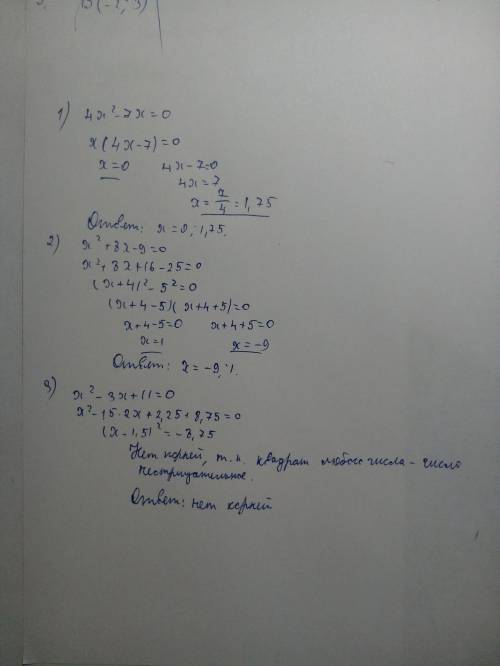 B(-2; 3)
1) 4x² - 7x = 0
x(4x-7) = 0
x = 0 4x - 7 = 0
4x = 7
x = 7/4 = 1,75
Ответ: x = 0; 1,75.
2) x² + 8x - 9 = 0
x² + 8x + 16 - 25 = 0
(x+4)² - 5² = 0
(x+4-5)(x+4+5) = 0
x+4-5=0 x+4+5=0
x=1 x=-9
Ответ: x = -9; 1.
3) x² - 3x + 11 = 0
x² - 1,5·2x + 2,25 + 8,75 = 0
(x - 1,5)² = -8,75
Нет корней, т.к. квадрат любого числа - число
неотрицательное.
Ответ: нет корней